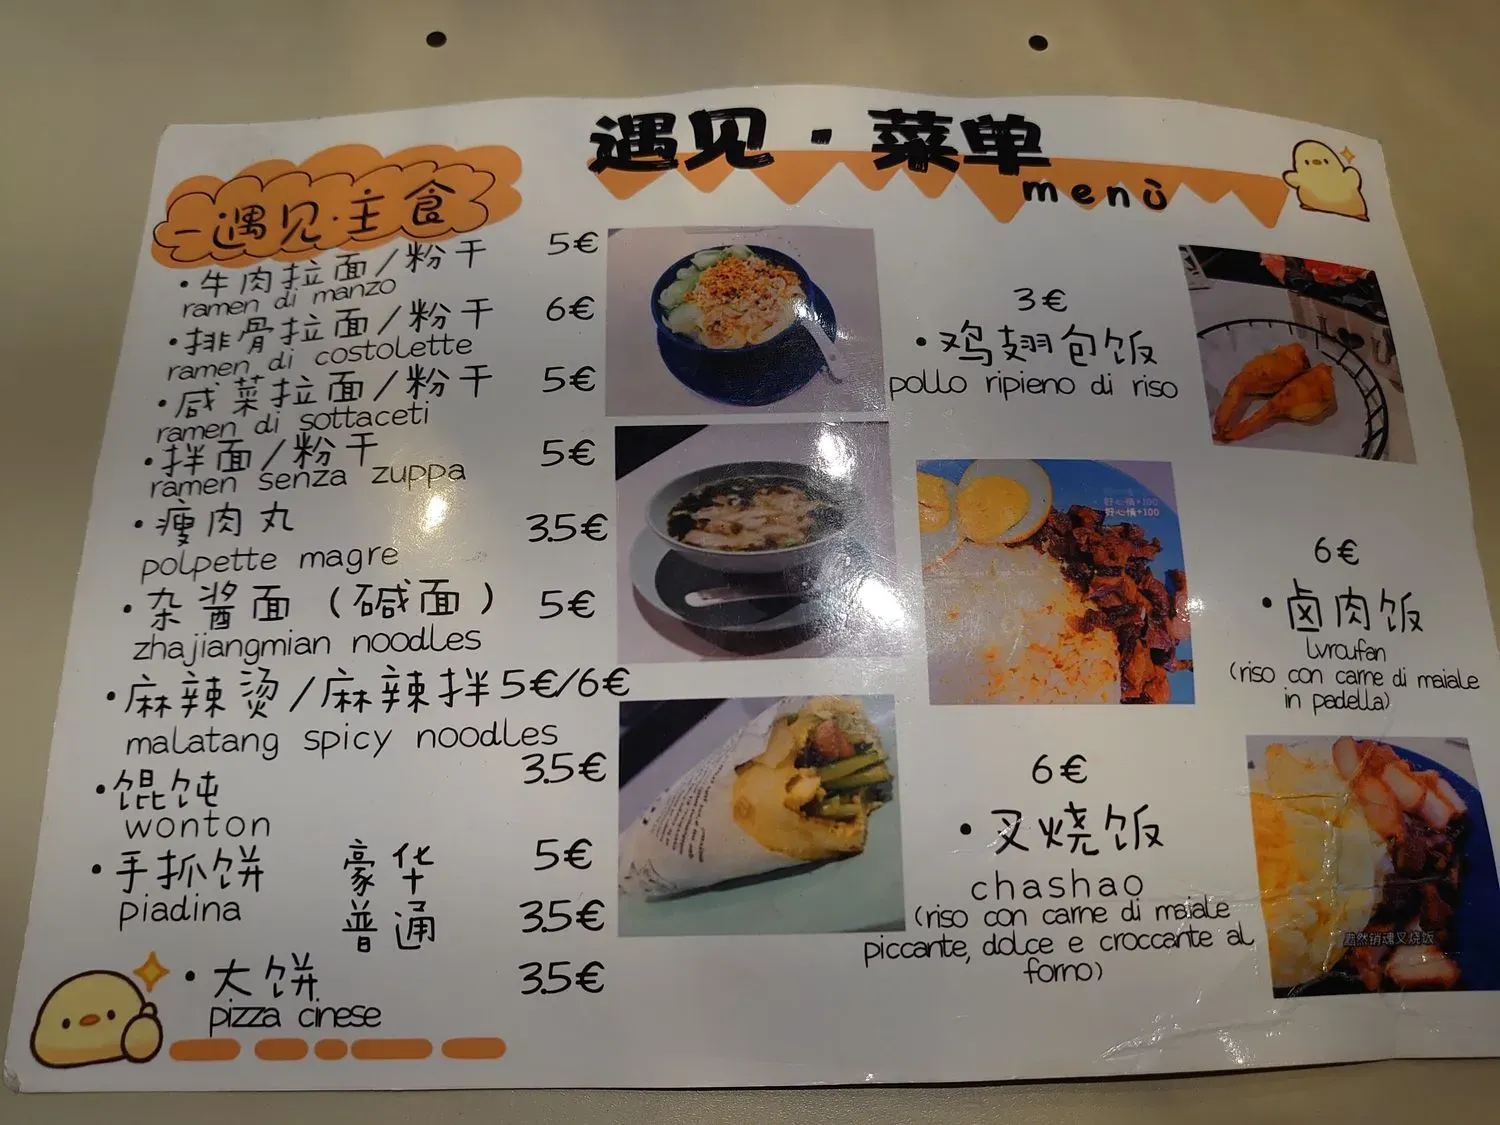 遇见·菜单
menù
遇见·主食
·牛肉拉面/粉干 5€
ramen di manzo
·排骨拉面/粉干 6€
ramen di costolette
·咸菜拉面/粉干 5€
ramen di sottaceti
·拌面/粉干 5€
ramen senza zuppa
·瘦肉丸 3.5€
polpette magre
·杂酱面（碱面） 5€
zhajiangmian noodles
·麻辣烫/麻辣拌 5€/6€
malatang spicy noodles
·馄饨 3.5€
wonton
·手抓饼 豪华 5€
piadina 普通 3.5€
·大饼 3.5€
pizza cinese
3€
·鸡翅包饭
pollo ripieno di riso
好心情+100
好心情+100
6€
·卤肉饭
lvroufan
(riso con carne di maiale
in padella)
6€
·叉烧饭
chashao
(riso con carne di maiale
piccante, dolce e croccante al
forno)
黯然销魂叉烧饭